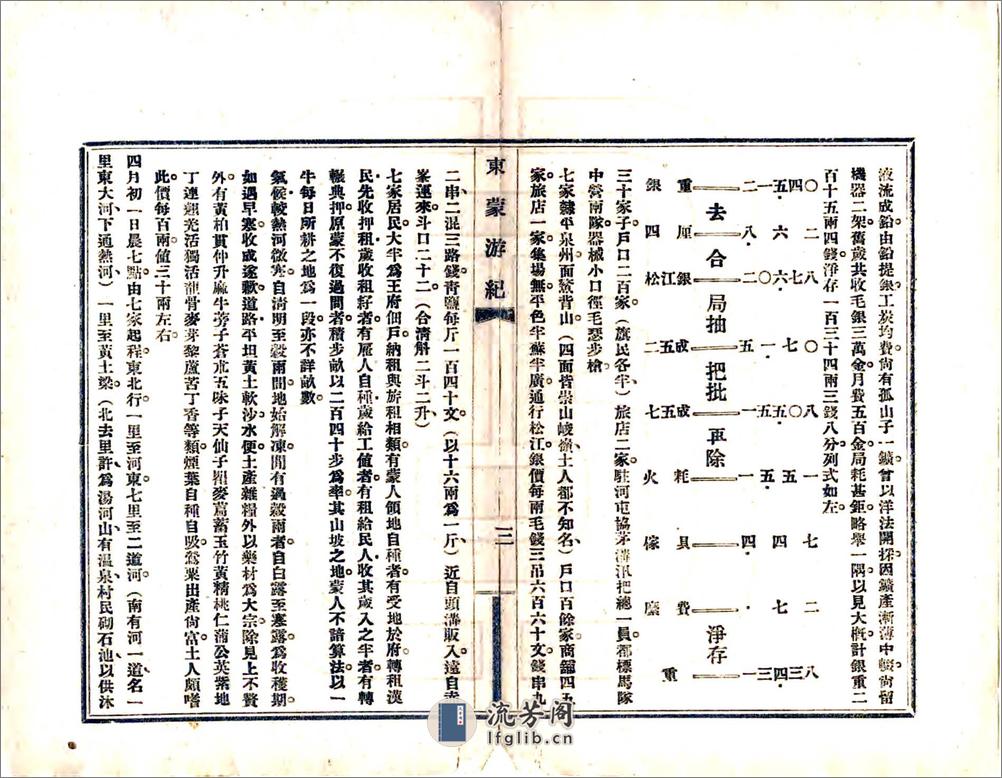 液流成鉛由鉛提銀工炭均費尙有孤山子一鑛曾以洋法開採因鑛產漸薄中輟尙留
機器二架舊歲共收毛銀三萬金月費五百金局耗甚鉅略舉一隅以見大槪計銀重二
百十五兩四錢淨存一百三十四兩三錢八分列式如左
銀重 二一五.四〇
去
四厘 八.六二
合
松江銀 二〇六.七八
局抽
二五成 五一.七〇
把批
七五成 一五五.〇八
再除
火耗 一.五五一
傢具 四.四七
廳費 .七二
淨存
重 一三四.三八
三十家子戶口二百家(旗民各半)旅店二家駐河屯協茅溝汛把總一員都標馬隊
中營南隊器械小口徑毛瑟步槍
七家隸平泉州面鰲背山(四面皆崇山峻嶺土人都不知名)戶口百餘家商鋪四五
家旅店一家集場無平色半蘇半廣通行松江銀價每兩毛錢三吊六百六十文錢串九
東蒙游紀
三
二串、二混三路錢靑鹽每斤一百四十文(以十六兩爲一斤)近自頭溝販入遠自
峯運來斗口二十二(合清斛二斗二升)
七家居民大半爲王府佃戶納租與旂租相類有蒙人領地自種者有受地於府轉租漢
民先收押租歲收租籽者有雇人自種歲給工値者有租給民人收其歲入之半者有轉
輾典押原蒙不復過問者積步畝以二百四十步爲率其山坡之地蒙人不諳算法以一
牛每日所耕之地爲一段亦不詳畝數
氣候較熱河微寒自清明至穀雨間地始解凍閒有過穀雨者自白露至寒露爲收穫期
如遇早寒收成遂歉道路平坦黃土軟沙水便土產雜糧外以藥材爲大宗除見上不贅
外有黃柏貫仲升麻牛蒡子蒼朮五味子天仙子瞿麥萹蓄玉竹黃精桃仁蒲公英紫地
丁連翹光活獨活龍骨麥芽黎蘆苦丁香等類煙葉自種自吸鶯粟出產尙富土人頗嗜
此價每百兩値三十兩左右
四月初一日晨七點由七家起程東北行一里至河東七里至二道河(南有河一道名一
里東大河下通熱河)一里至黃土梁(北去里許爲湯河山有溫泉村民砌石池以供沐
流芳阁
lfglib.cn